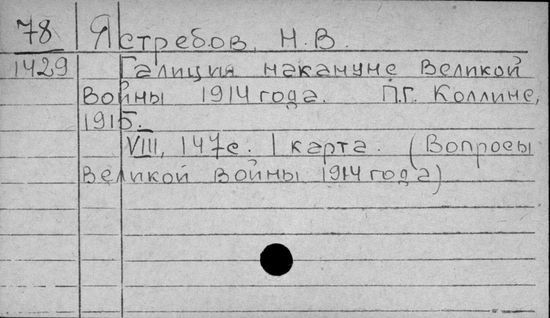 78 Ястребов, Н.В.
1429 Галиция накануне Великой
Войны 1914 года. П.Г. Коллинс,
1915.
VIII, 147с. 1 карта. (Вопросы
Великой Войны 1914 года)